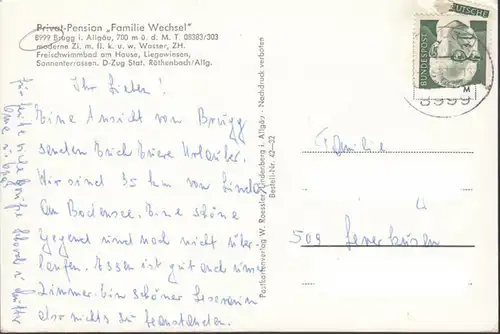 Privat-Pension „Familie Wechsel"
8999 Brugg i. Allgäu, 700 m ü. d. M. T. 08383/303
moderne Zi. m. fl. k. u. w. Wasser, ZH.
Freischwimmbad am Hause, Liegewiesen,
Sonnenterrassen. D-Zug Stat. Röthenbach/Allg.
Ihr Lieben!
Eine Ansicht von Brugg
senden Euch Eure Urlauber.
Wir sind 35 km von Lindau
am Bodensee. Eine schöne
Gegend und noch nicht über-
laufen. Essen ist gut auch uns.
Zimmer. Ein schöner
also nichts zu beanstanden.
für heute viele Grüße
Oma u. Opa
Postkartenverlag W. Roessler, Lindenberg i. Allgäu - Nachdruck verboten
Bestell-Nr. 42-32
DEUTSCHE
BUNDESPOST
8999
Familie
509 Leverkusen